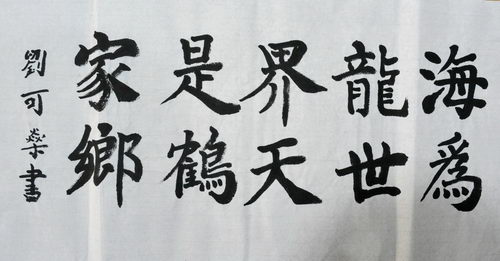 海爲
龍世
界天
是鶴
家鄉
劉可書